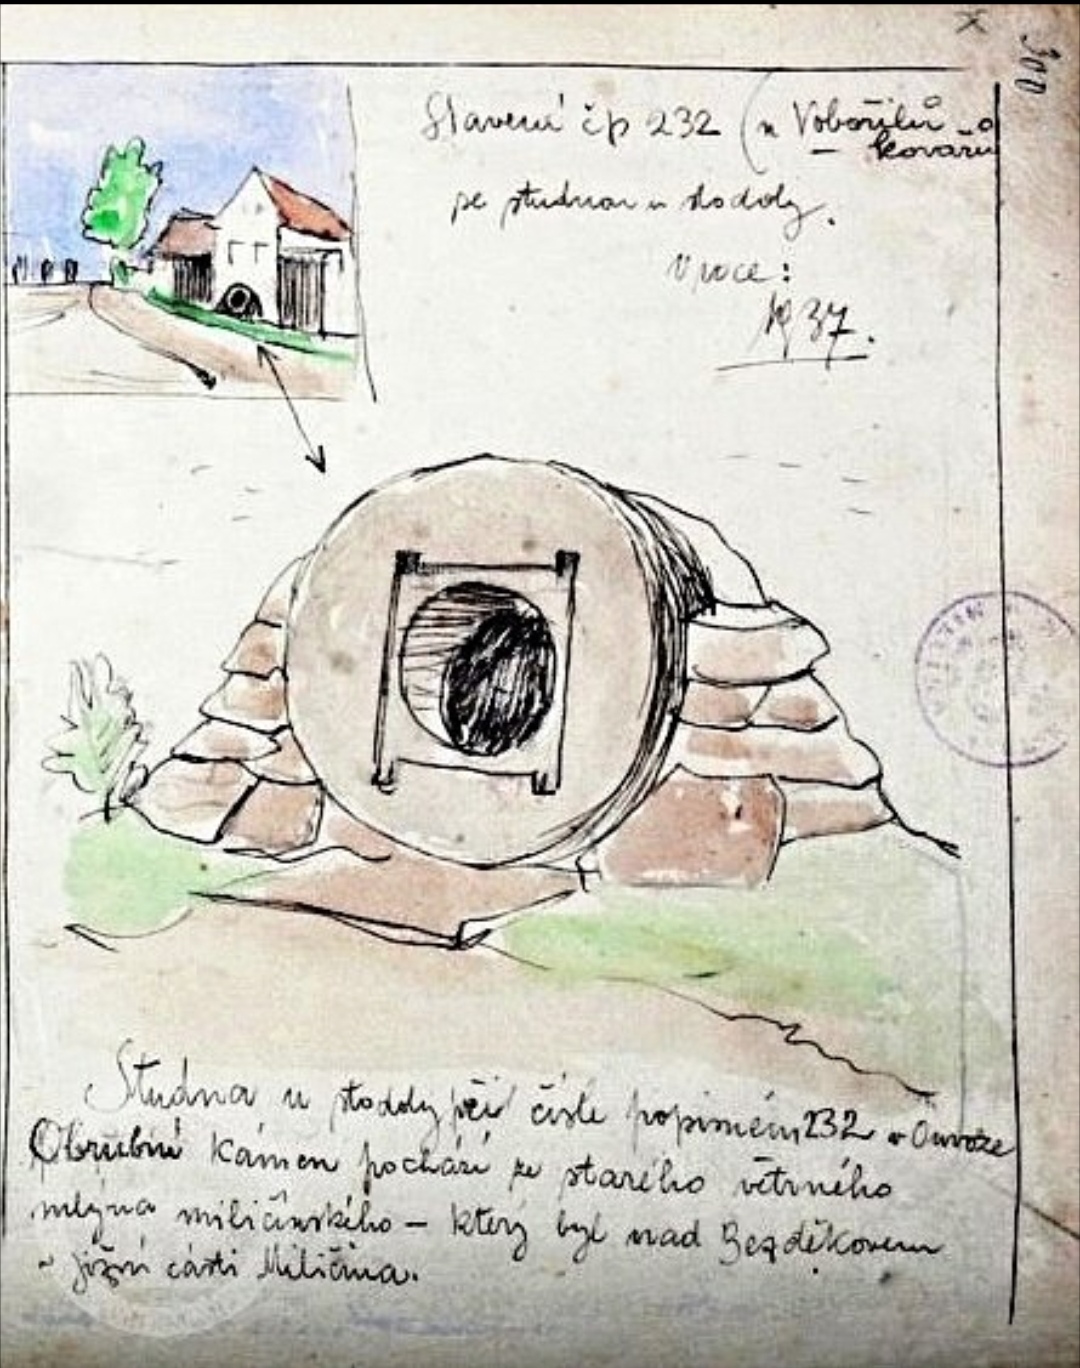 300
Stavení čp 232 (u Vobořilů
Kovářů
se studnou u stodoly.
V roce:
1937.
Studna u stodoly při čísle popisném 232 v Ouvoze
Obrubní kámen pochází ze starého větrného
mlýna miličínského – který byl nad Bezděkovem
v jižní části Miličína.